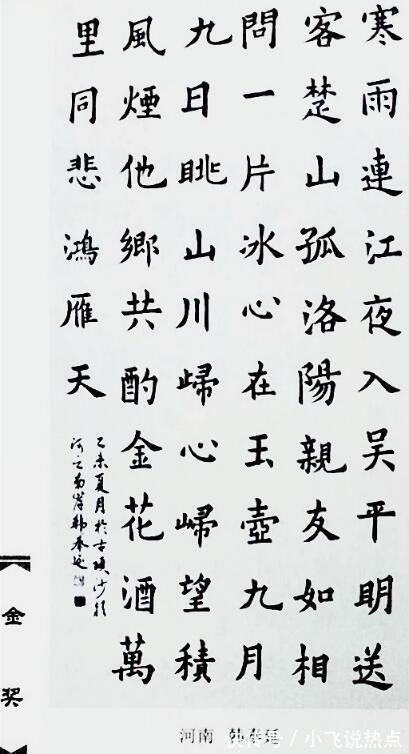 寒雨連江夜入吴平明送
客楚山孤洛陽親友如相
問一片冰心在玉壺九月
九日眺山川歸心歸望積
風煙他鄉共酌金花酒萬
里同悲鴻雁天
乙未夏月於古項沙
河之南岸韩春
金奖
河南 韩春
快传号/小飞说热点